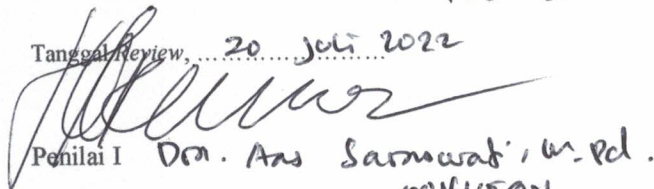 Tanggal Review, ...... 20 Juli 2022
Penilai I Dra. Aas Saraswati, M.Pd.